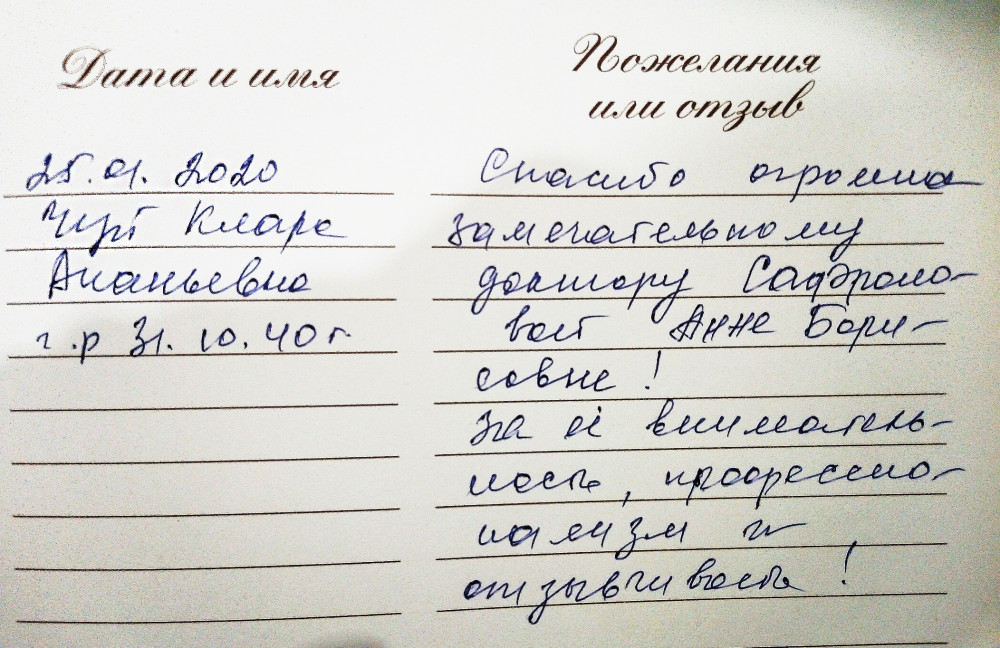 Дата и имя
25.01.2020
Клара
Ананьевна
г.р 31.10.40г.
Пожелания
или отзыв
Спасибо огромное
замечательному
доктору
Анне Бори-
совне!
За её вниматель-
ность, профессио-
нализм и
отзывчивость!